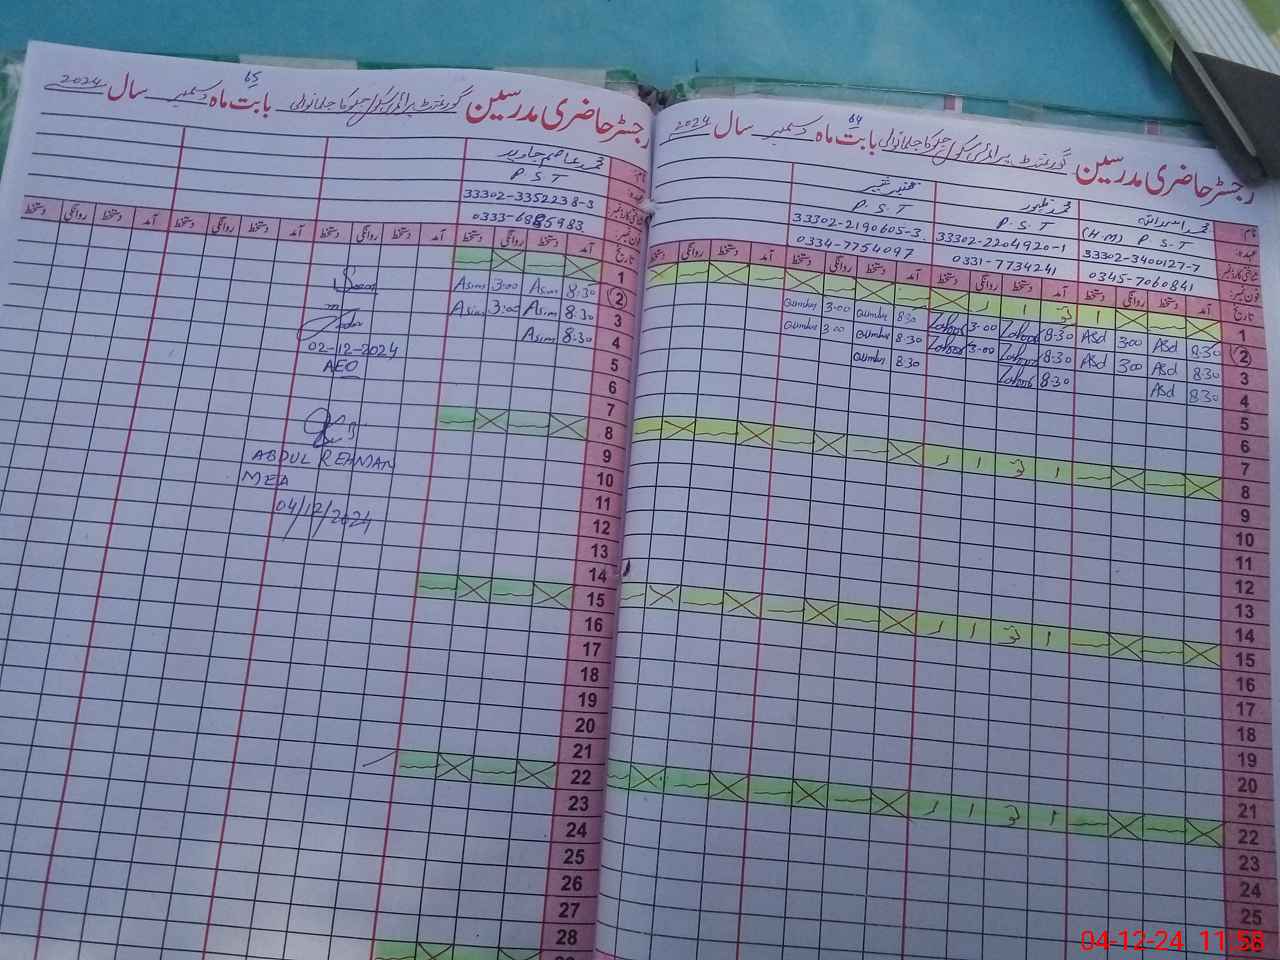 رجسٹر حاضری مدرسین گورنمنٹ پرائمری سکول بابت ماہ دسمبر سال 2024
64
نام: محمد اسد اللہ محمد ظہور
عہدہ: P.S.T (H.M) P.S.T P.S.T
33302-3400127-7 33302-2204920-1 33302-2190605-3
فون نمبر: 0345-7060841 0331-7734241 0334-7754097
تاریخ آمد دستخط روانگی دستخط آمد دستخط روانگی دستخط آمد دستخط روانگی دستخط آمد دستخط روانگی دستخط
1 ا ت و ا ر
2 8:30 Asd 3:00 Asd 8:30 3:00 8:30 Qumbr 3:00 Qumbr
3 8:30 Asd 3:00 Asd 8:30 3:00 8:30 Qumbr 3:00 Qumbr
4 8:30 Asd 8:30 8:30 Qumbr
5
6
7
8 ا ت و ا ر
9
10
11
12
13
14
15 ا ت و ا ر
16
17
18
19
20
21
22 ا ت و ا ر
23
24
25
رجسٹر حاضری مدرسین گورنمنٹ پرائمری سکول بابت ماہ دسمبر سال 2024
65
نام: محمد عاصم جاوید
عہدہ: P.S.T
33302-3352238-3
فون نمبر: 0333-6985983
تاریخ آمد دستخط روانگی دستخط آمد دستخط روانگی دستخط آمد دستخط روانگی دستخط آمد دستخط روانگی دستخط
1
2 8:30 Asim 3:00 Asim
3 8:30 Asim 3:00 Asim
4 8:30 Asim
02-12-2024
5
AEO
6
7
8
9
ABDUL REHMAN
10
MEA
11
04/12/2024
12
13
14
15
16
17
18
19
20
21
22
23
24
25
26
27
28
04-12-24 11:58